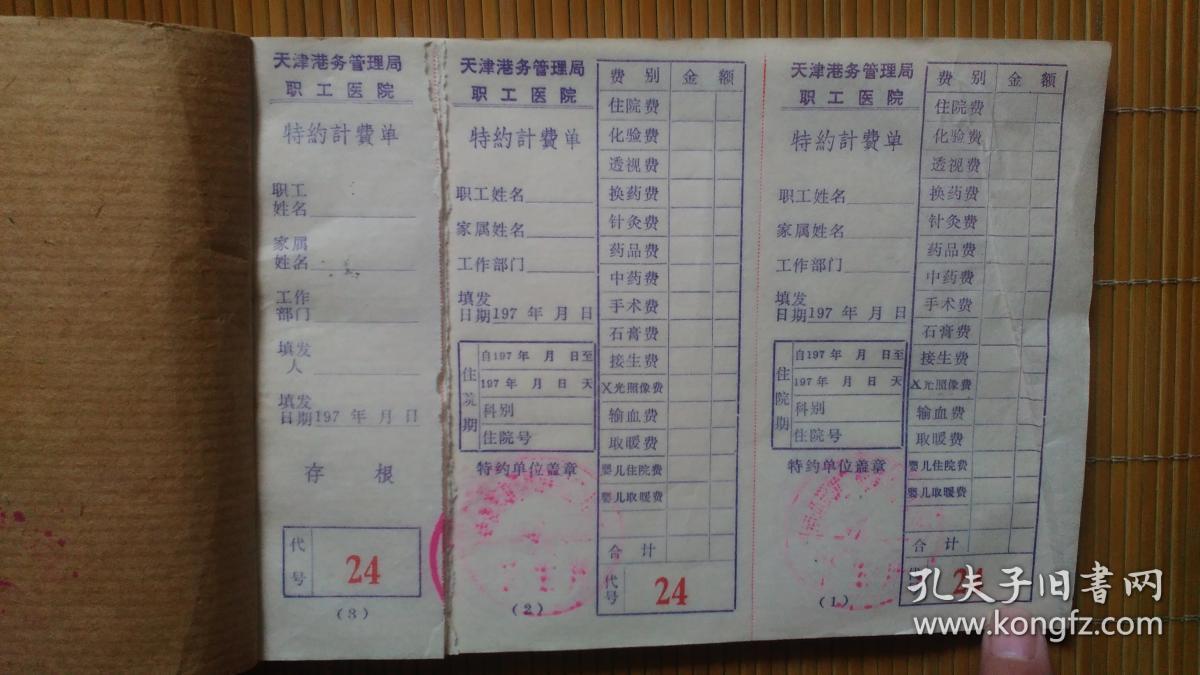 天津港务管理局
职工医院
特約計費单
职工
姓名
家属
姓名
工作
部门
填发
人
填发
日期197 年 月 日
存 根
代号
24
(3)
天津港务管理局
职工医院
特約計費单
职工姓名
家属姓名
工作部门
填发
日期197 年 月 日
住院期
自197 年 月 日至
197 年 月 日 天
科别
住院号
特约单位盖章
(2)
费 别 金 额
住院费
化验费
透视费
换药费
针灸费
药品费
中药费
手术费
石膏费
接生费
X光照像费
输血费
取暖费
婴儿住院费
婴儿取暖费
合 计
代号
24
天津港务管理局
职工医院
特約計費单
职工姓名
家属姓名
工作部门
填发
日期197 年 月 日
住院期
自197 年 月 日至
197 年 月 日 天
科别
住院号
特约单位盖章
(1)
费 别 金 额
住院费
化验费
透视费
换药费
针灸费
药品费
中药费
手术费
石膏费
接生费
X光照像费
输血费
取暖费
婴儿住院费
婴儿取暖费
合 计
24
孔夫子旧书网
www.kongfz.com